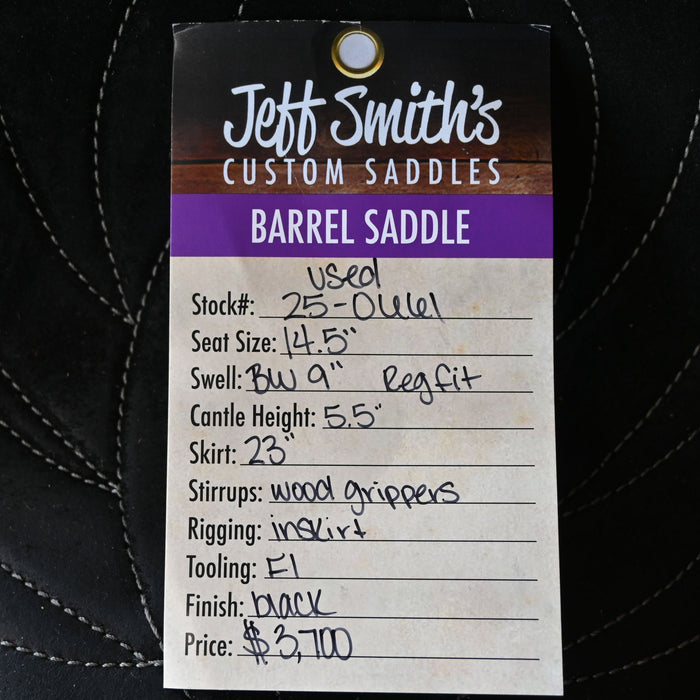 Jeff Smith's
CUSTOM SADDLES
BARREL SADDLE
used
Stock#: 25-0661
Seat Size: 14.5"
Swell: BW 9" Reg fit
Cantle Height: 5.5"
Skirt: 23"
Stirrups: wood grippers
Rigging: inskirt
Tooling: F1
Finish: black
Price: $3,700